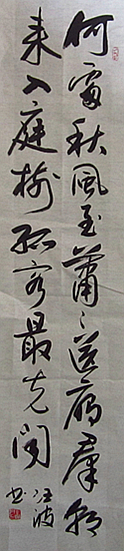 何處秋風至蕭〻送雁羣朝
来入庭樹孤客最先聞
波
書